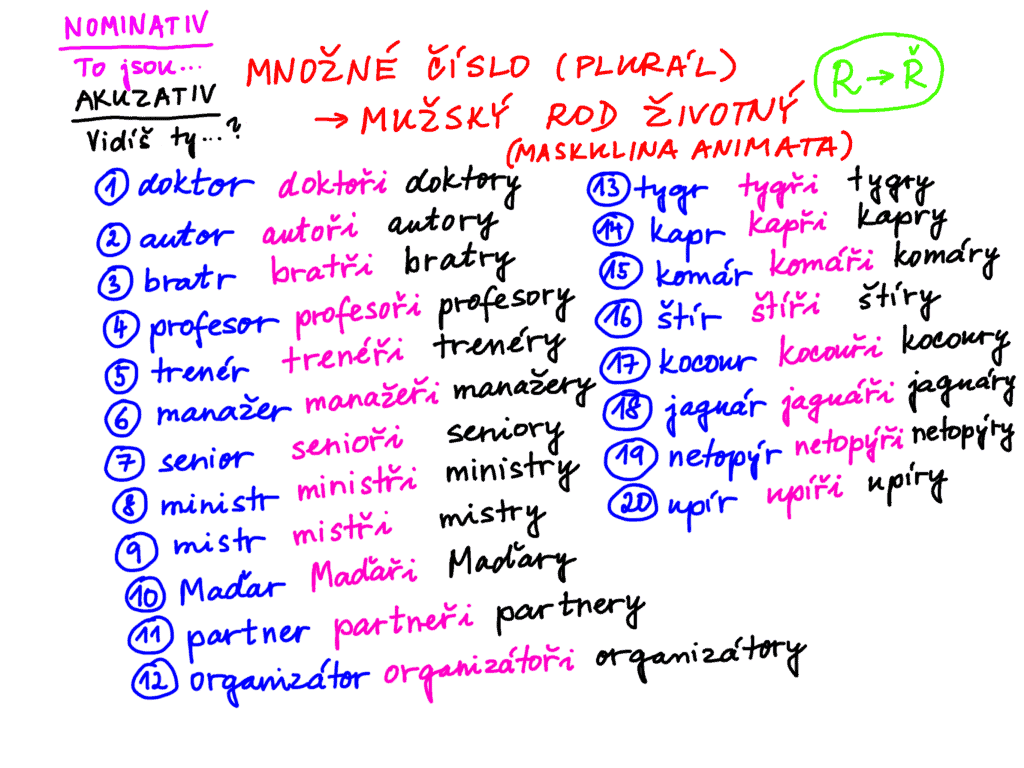 NOMINATIV
To jsou...
AKUZATIV
Vidíš ty...?
MNOŽNÉ ČÍSLO (PLURÁL)
→ MUŽSKÝ ROD ŽIVOTNÝ
(MASKULINA ANIMATA)
R → Ř
1 doktor doktoři doktory
2 autor autoři autory
3 bratr bratři bratry
4 profesor profesoři profesory
5 trenér trenéři trenéry
6 manažer manažeři manažery
7 senior senioři seniory
8 ministr ministři ministry
9 mistr mistři mistry
10 Maďar Maďaři Maďary
11 partner partneři partnery
12 organizátor organizátoři organizátory
13 tygr tygři tygry
14 kapr kapři kapry
15 komár komáři komáry
16 štír štíři štíry
17 kocour kocouři kocoury
18 jaguár jaguáři jaguáry
19 netopýr netopýři netopýry
20 upír upíři upíry